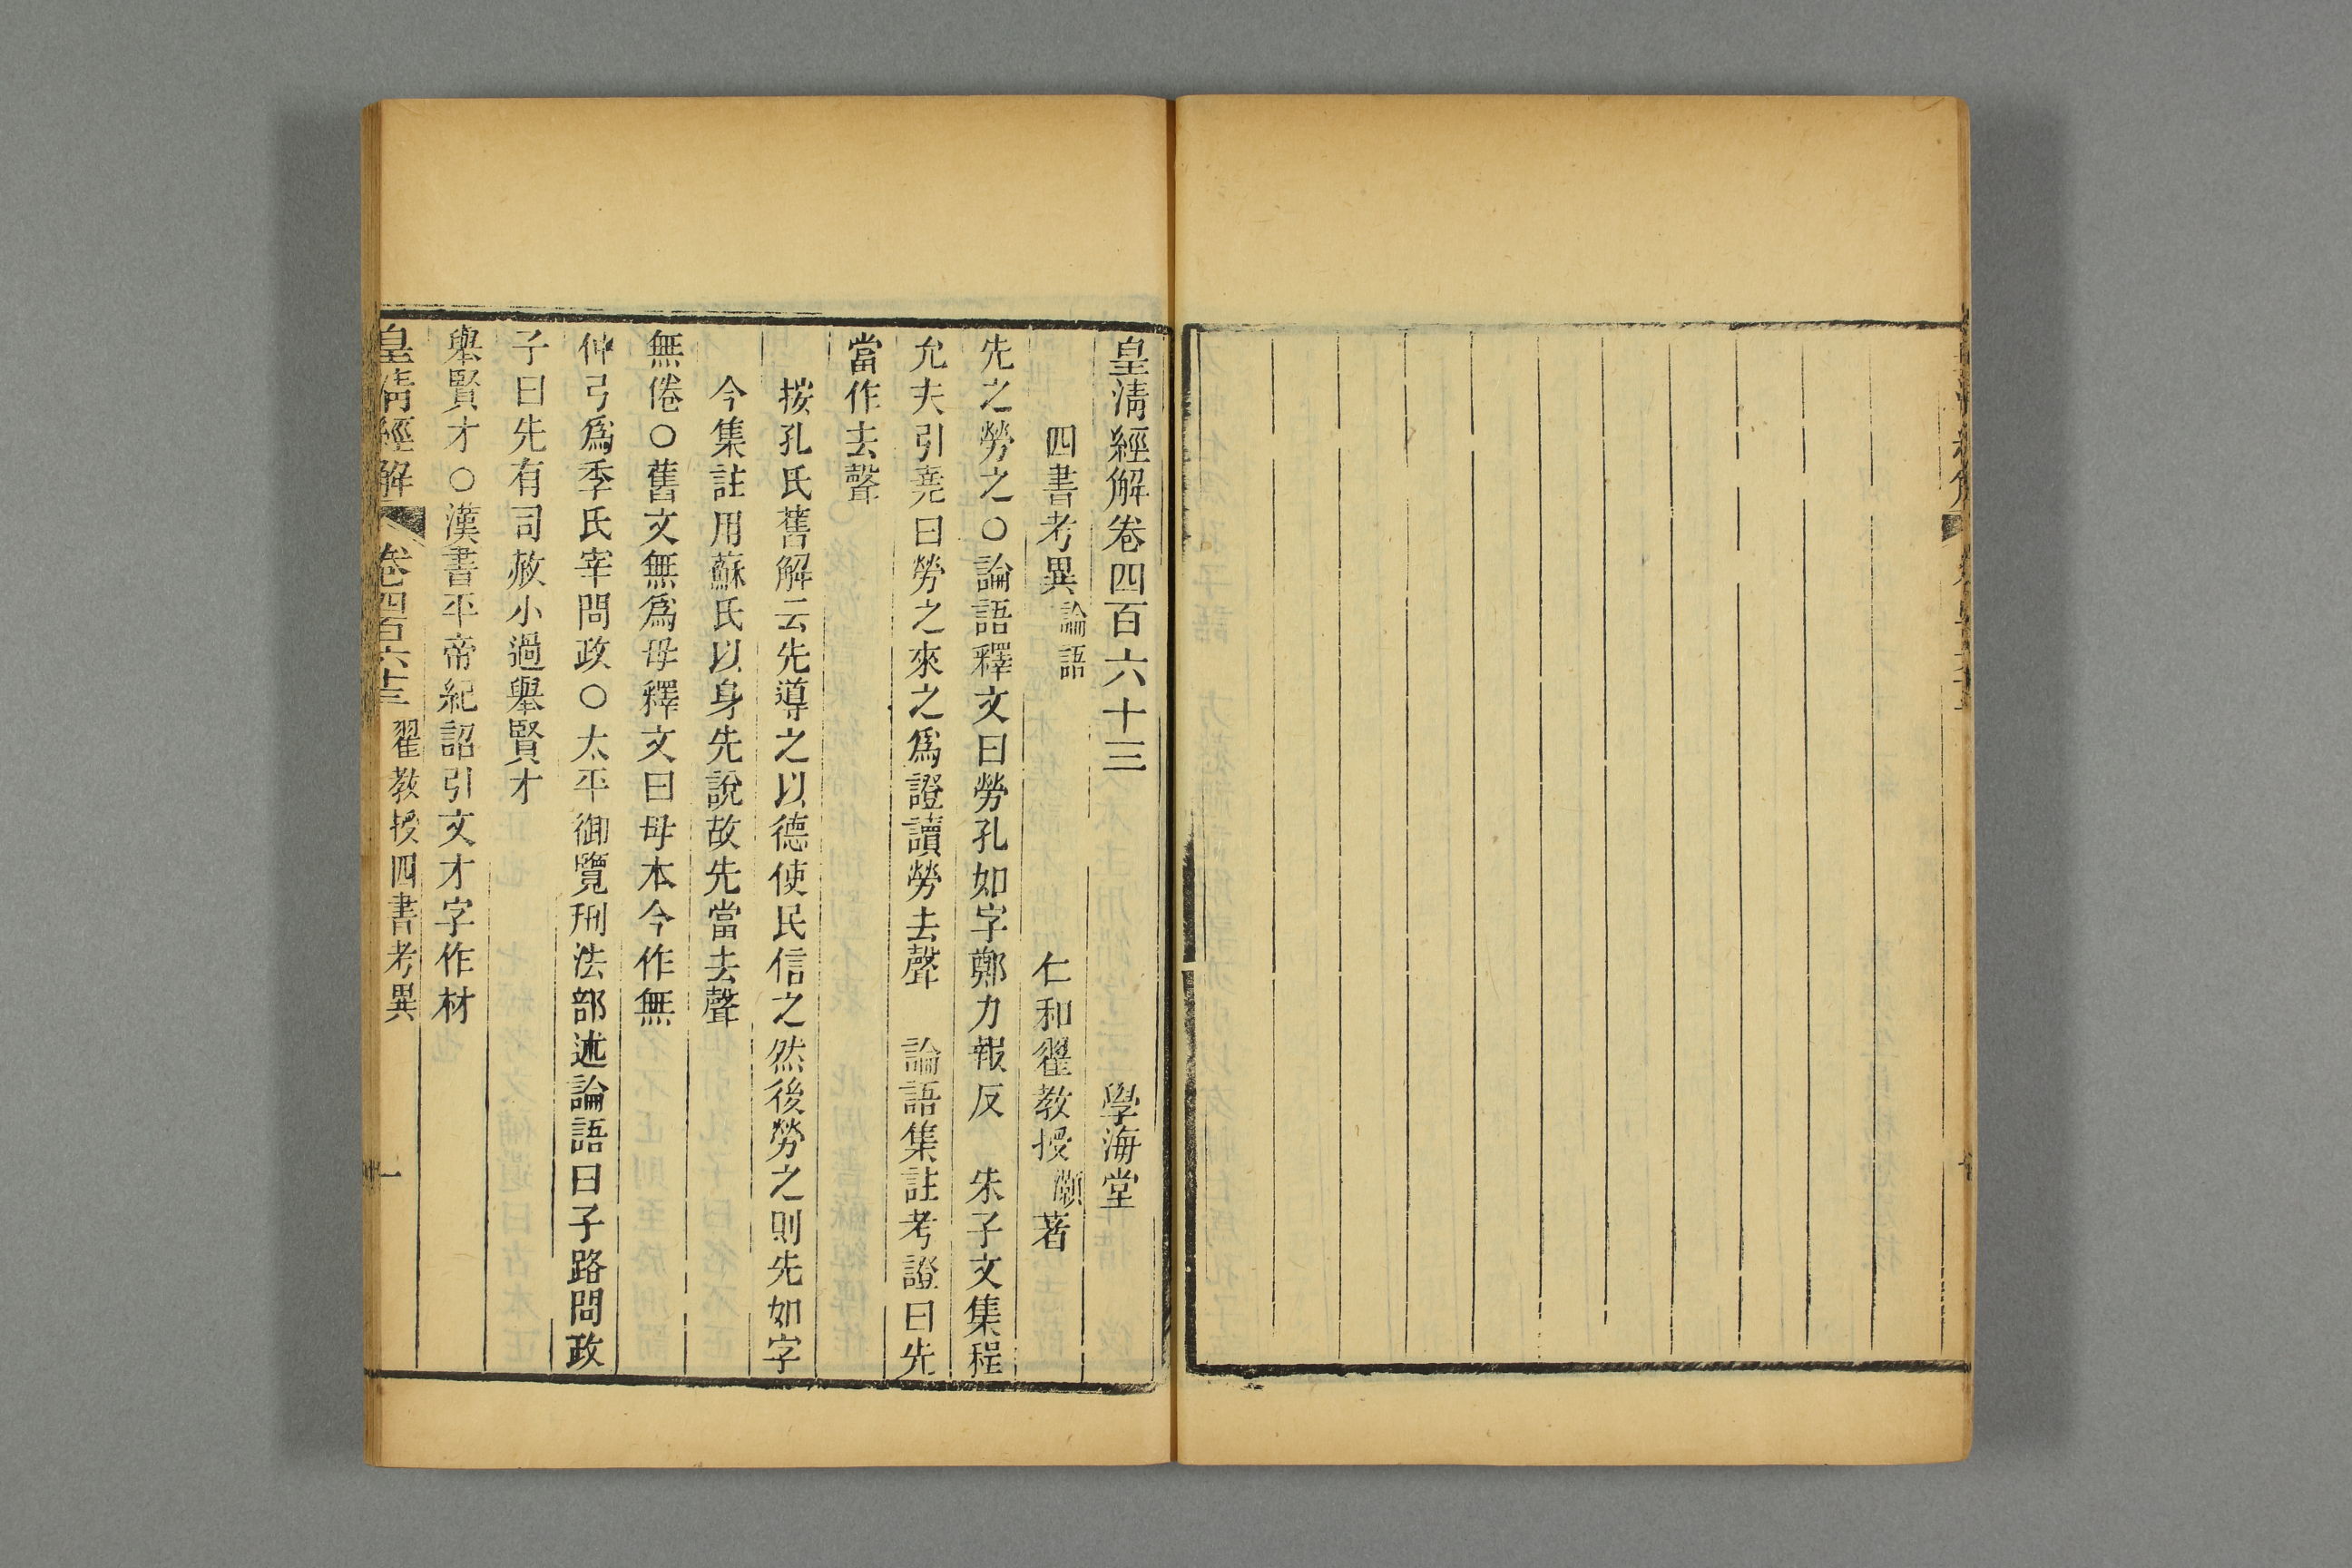 皇清經解卷四百六十三　學海堂
四書考異論語　仁和翟教授灝著
先之勞之○論語釋文曰勞孔如字鄭力報反　朱子文集程
允夫引堯曰勞之來之爲證讀勞去聲　論語集註考證曰先
當作去聲
按孔氏舊解云先導之以德使民信之然後勞之則先如字
今集註用蘇氏以身先說故先當去聲
無倦○舊文無爲毋釋文曰毋本今作無
仲弓爲季氏宰問政○太平御覽刑法部述論語曰子路問政
子曰先有司赦小過舉賢才
舉賢才○漢書平帝紀詔引文才字作材
皇清經解　卷四百六十三　翟教授四書考異　一